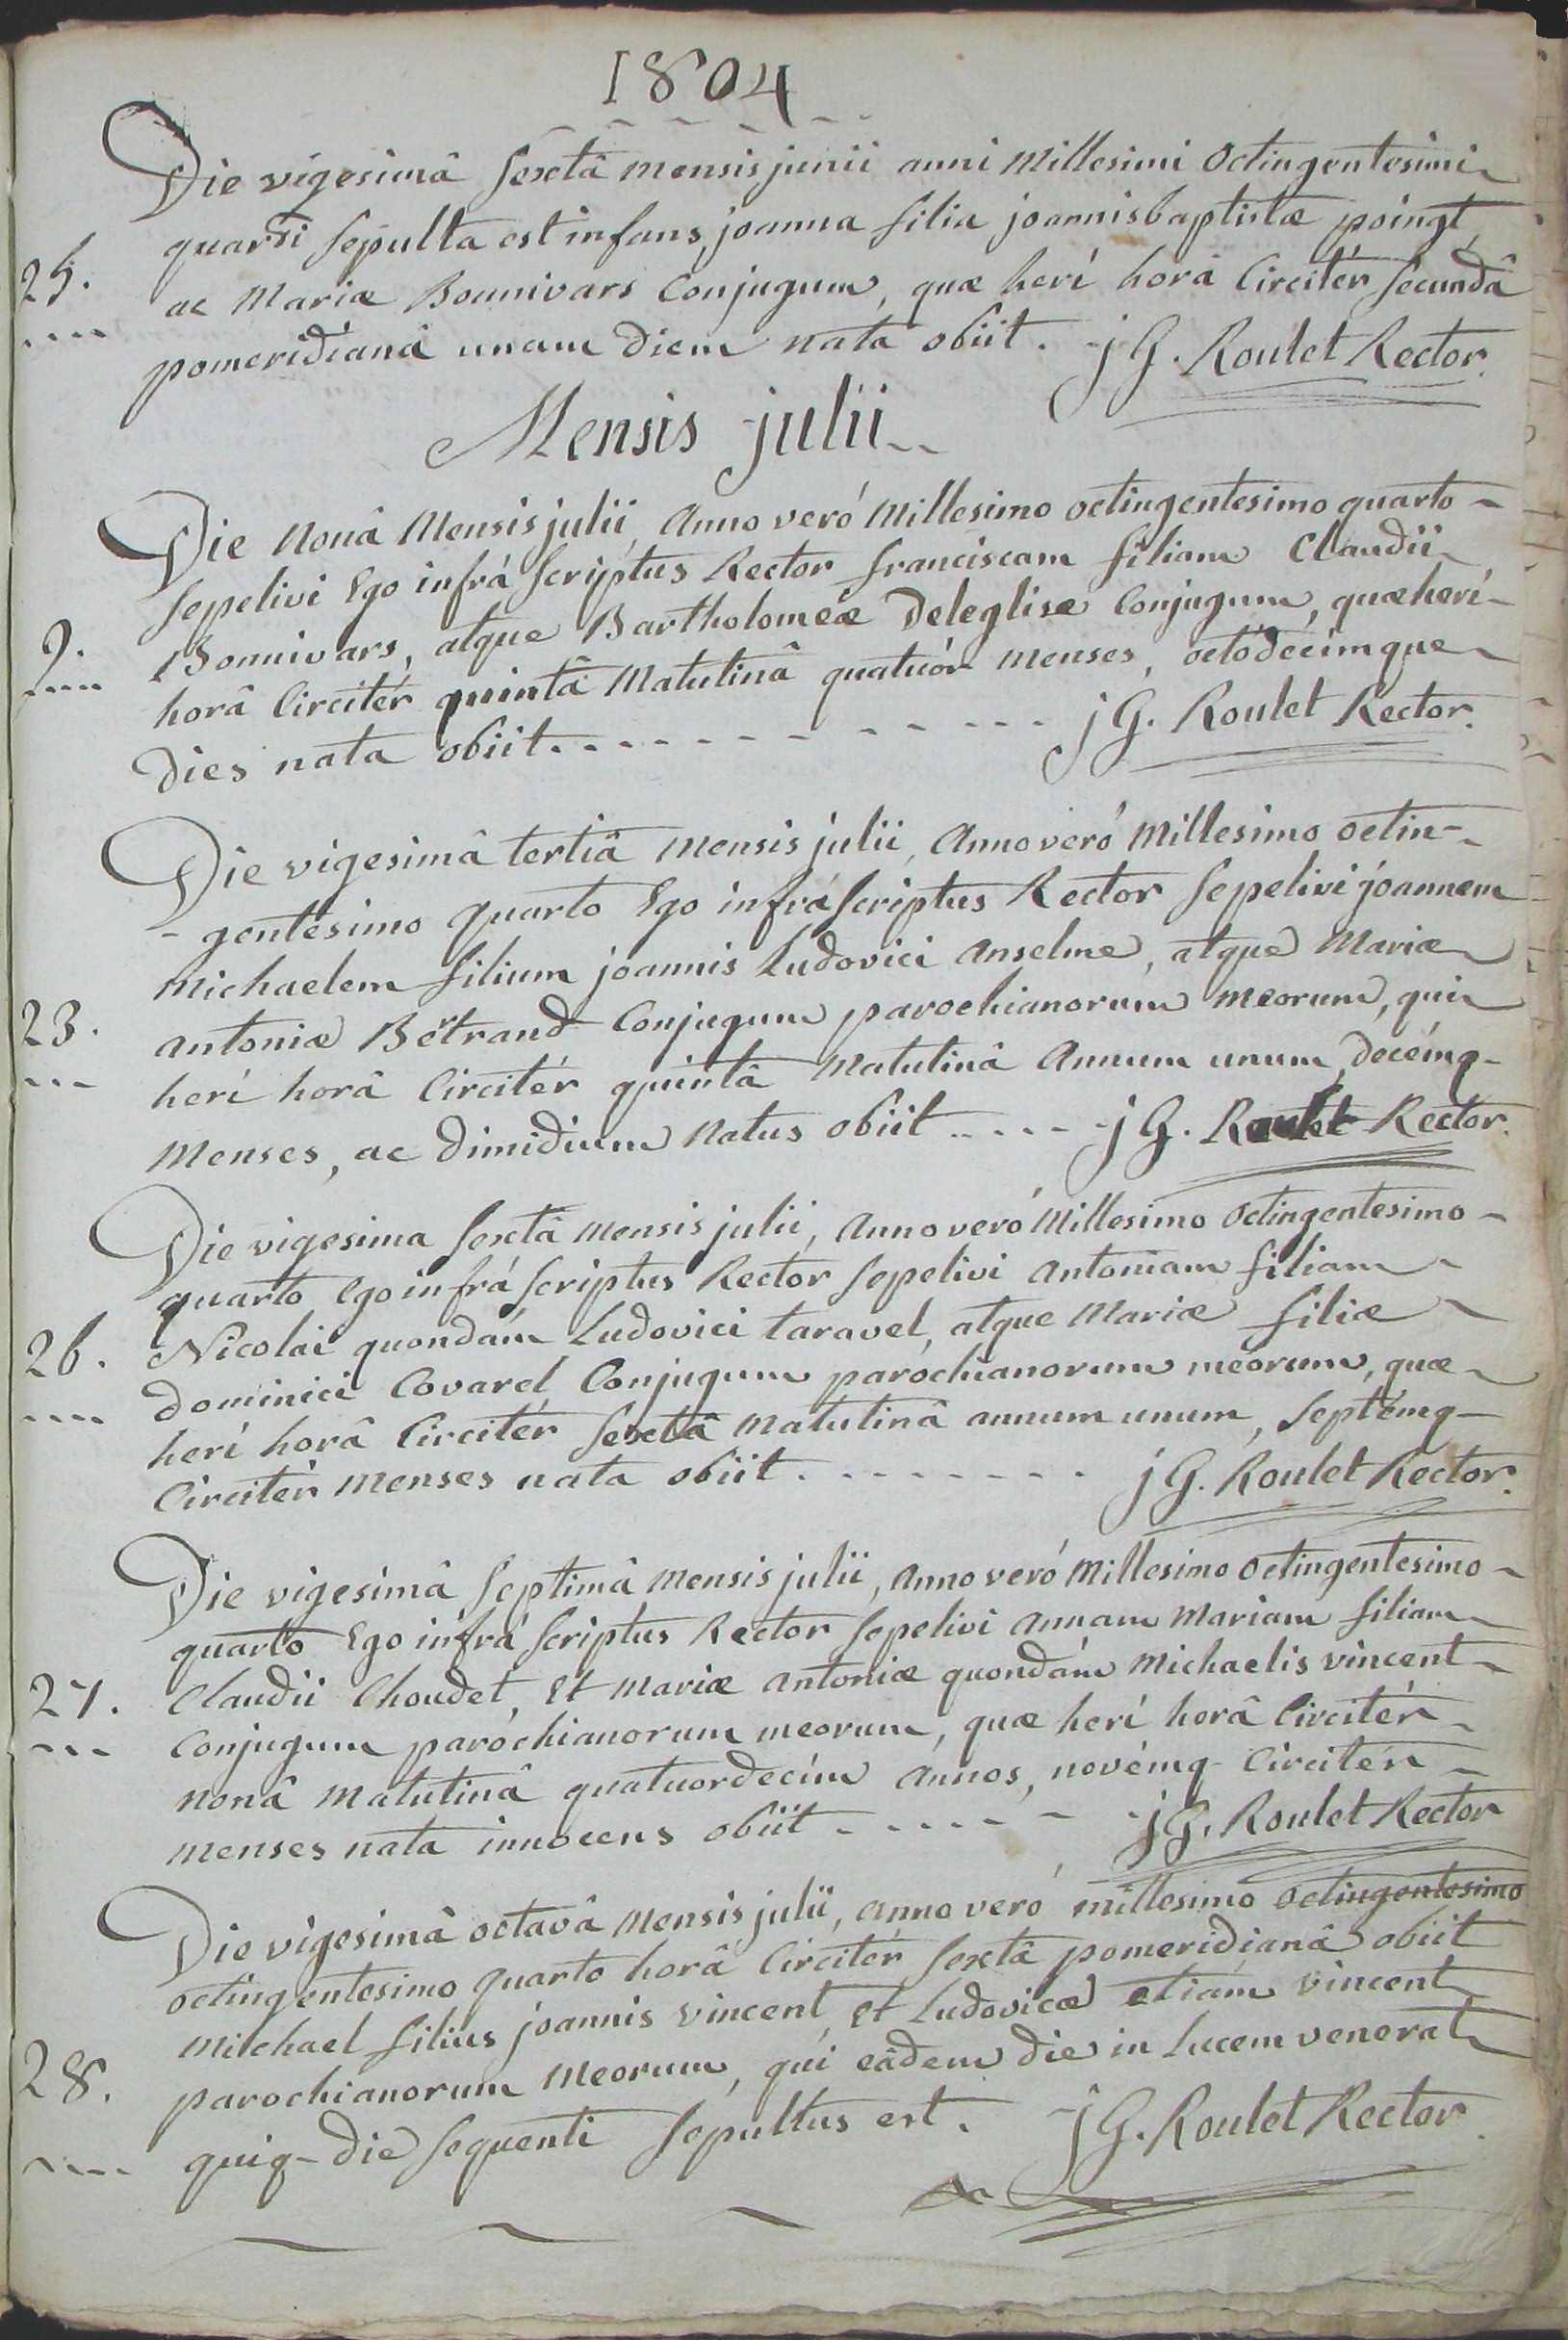 1804
Die vigesimâ sextâ mensis junii anni Millesimi Octingentesimi
quarti sepulta est infans joanna filia joannisbaptistæ poingt
25. ac Mariæ Bonnivars Conjugum, quæ herí horâ Circitér secundâ
pomeridianâ unam diem nata obiit. j G. Roulet Rector.
Mensis julii
Die Nonâ Mensis julii, Anno veró Millesimo octingentesimo quarto -
sepelivi Ego infrá scriptus Rector franciscam filiam Claudii
9. Bonnivars, atque Bartholomeæ Deleglise Conjugum, quæ herí -
horâ Circitér quintâ Matutinâ quatuór menses, octódecimque
dies nata obiit. - - - - - - - - - - j G. Roulet Rector.
Die vigesimâ tertiâ Mensis julii, Anno veró Millesimo octin-
- gentesimo quarto Ego infrá scriptus Rector sepelivi joannem
michaelem filium joannis Ludovici Anselme, atque Mariæ
23. antoniæ Bertrand Conjugum parochianorum meorum, qui
herí horâ Circitér quintâ Matutinâ Annum unum, decémq-
Menses, ac dimidium Natus obiit - - - - - j G. Roulet Rector.
Die vigesima sextâ Mensis julii, Anno veró Millesimo Octingentesimo -
quarto Ego infrá scriptus Rector sepelivi Antoniam filiam
26. Nicolai quondám Ludovici taravel, atque Mariæ filiæ
dominici Covarel Conjugum paróchianorum meórum, quæ
herí horâ Circitér sextâ Matutinâ annum unum, septémq-
Circitér menses nata obiit. - - - - - - - - j G. Roulet Rector.
Die vigesimâ septimâ Mensis julii, Anno veró Millesimo Octingentesimo -
quarto Ego infrá scriptus Rector sepelivi Annam Mariam filiam
27. Claudii Choudet, Et Mariæ Antoniæ quondám Michaelis vincent
Conjugum paróchianorum meorum, quæ herí horâ Circitér
Nonâ Matutinâ quatuordecím Annos, novémq- Circitér
menses nata innocens obiit - - - - - - - j G. Roulet Rector
Die vigesimâ octavâ Mensis julii, Anno veró millesimo octingentesimo
octingentesimo quarto horâ Circitér sextâ pomeridianâ obiit
Michael filius joannis vincent, Et Ludovicæ etiám vincent
28. parochianorum Meorum, qui eâdem die in Lucem venerat
quiq- die sequenti sepultus est. j G. Roulet Rector